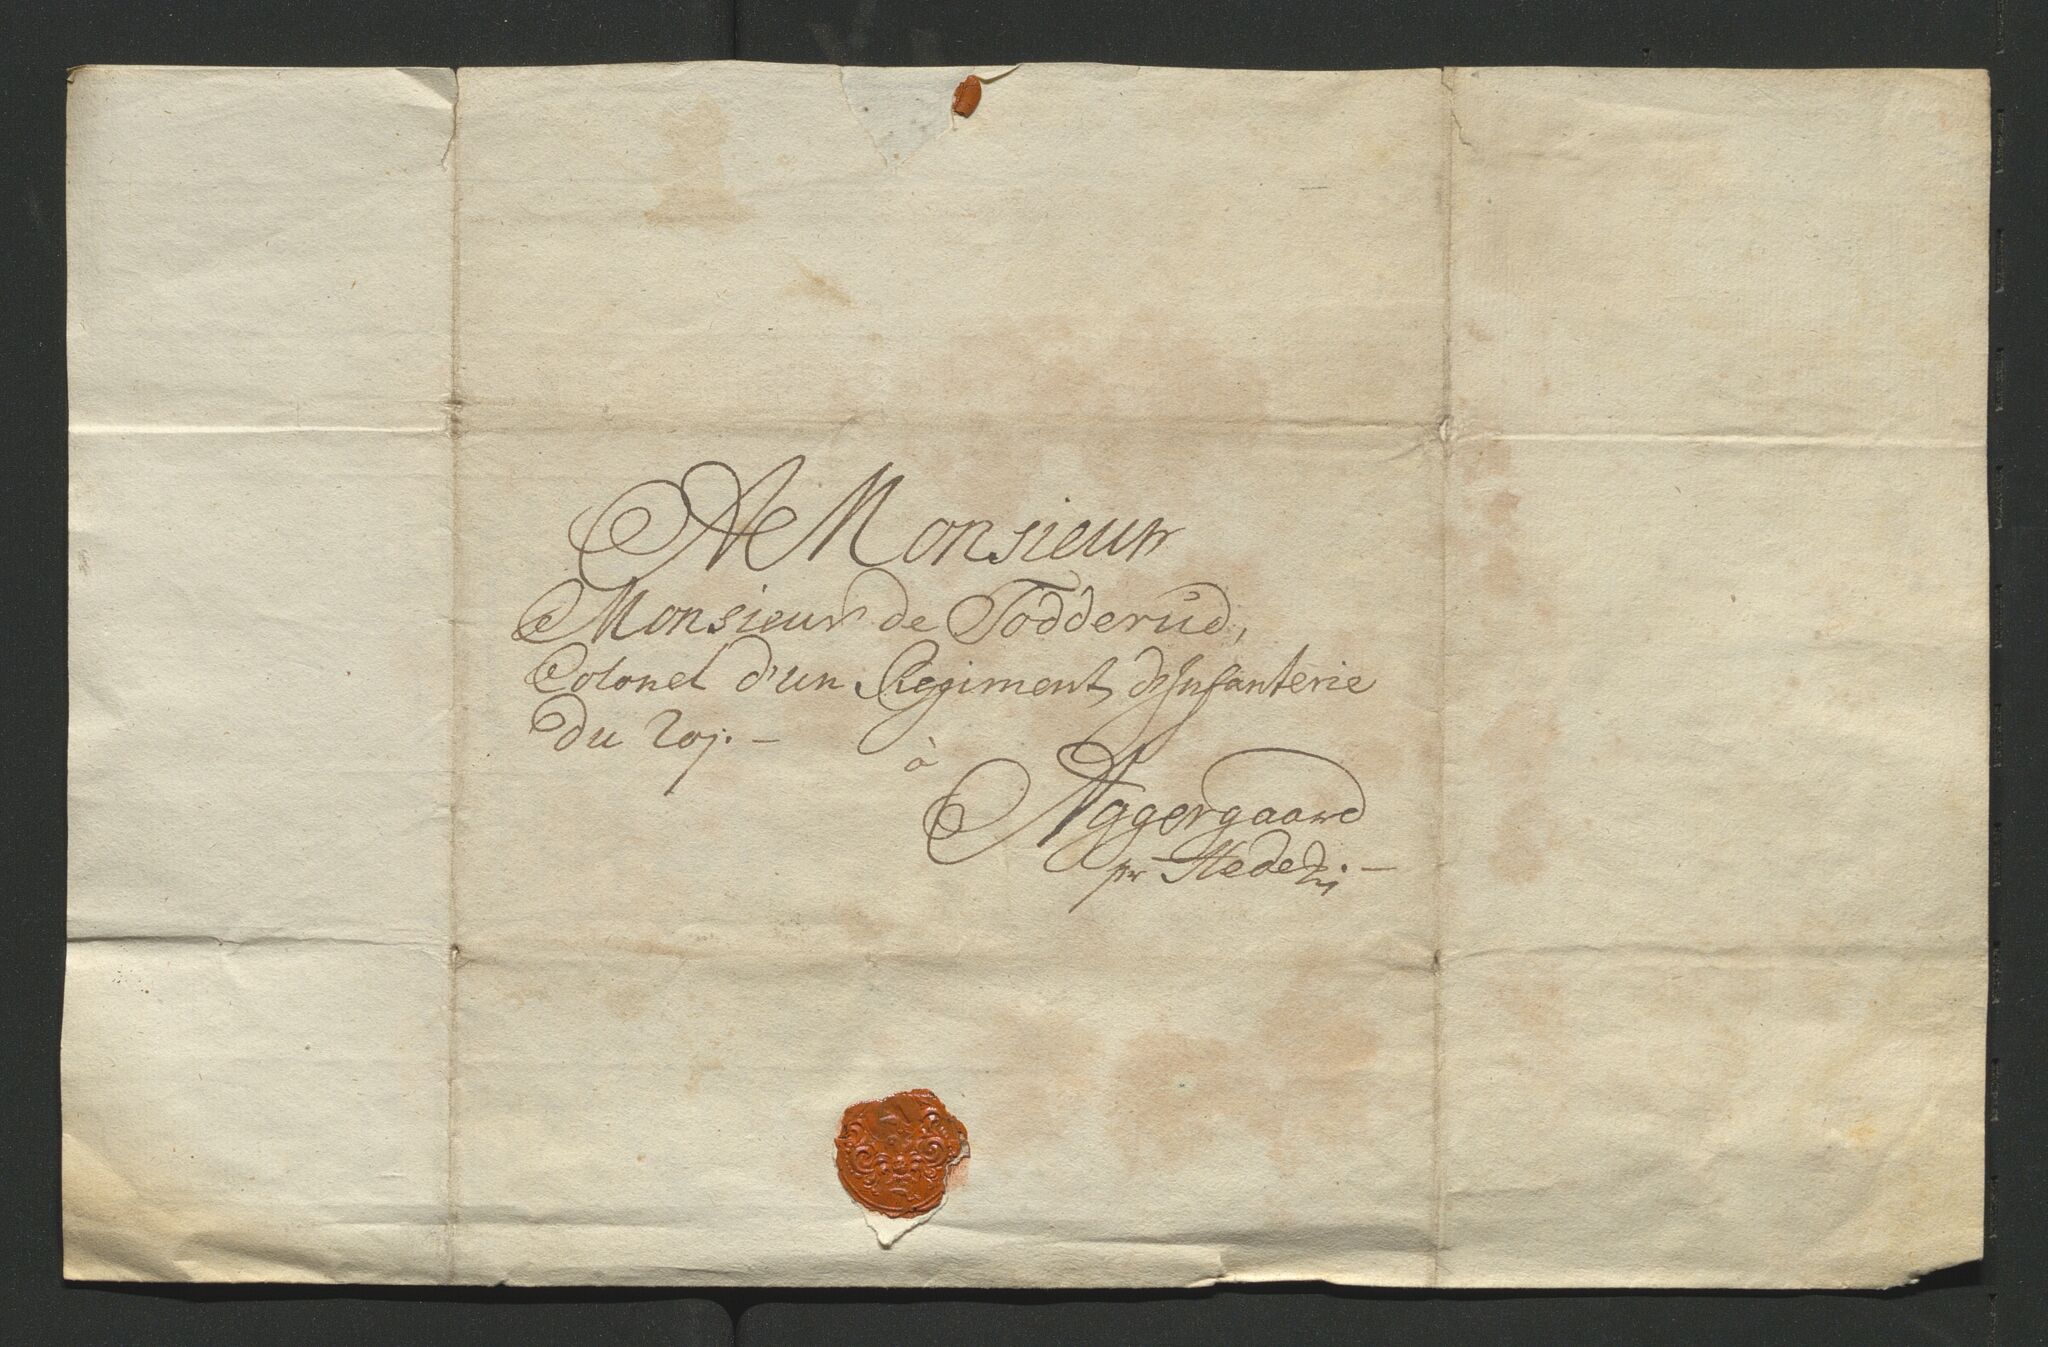 A Monsieur
Monsieur de Todderud,
Colonel d'un Regiment d'Infanterie
du Roj. –
à
Aggergaard
pr